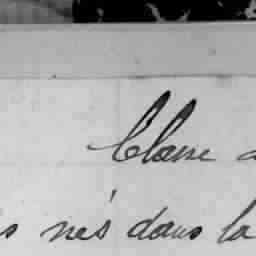 Classe
nés dans la